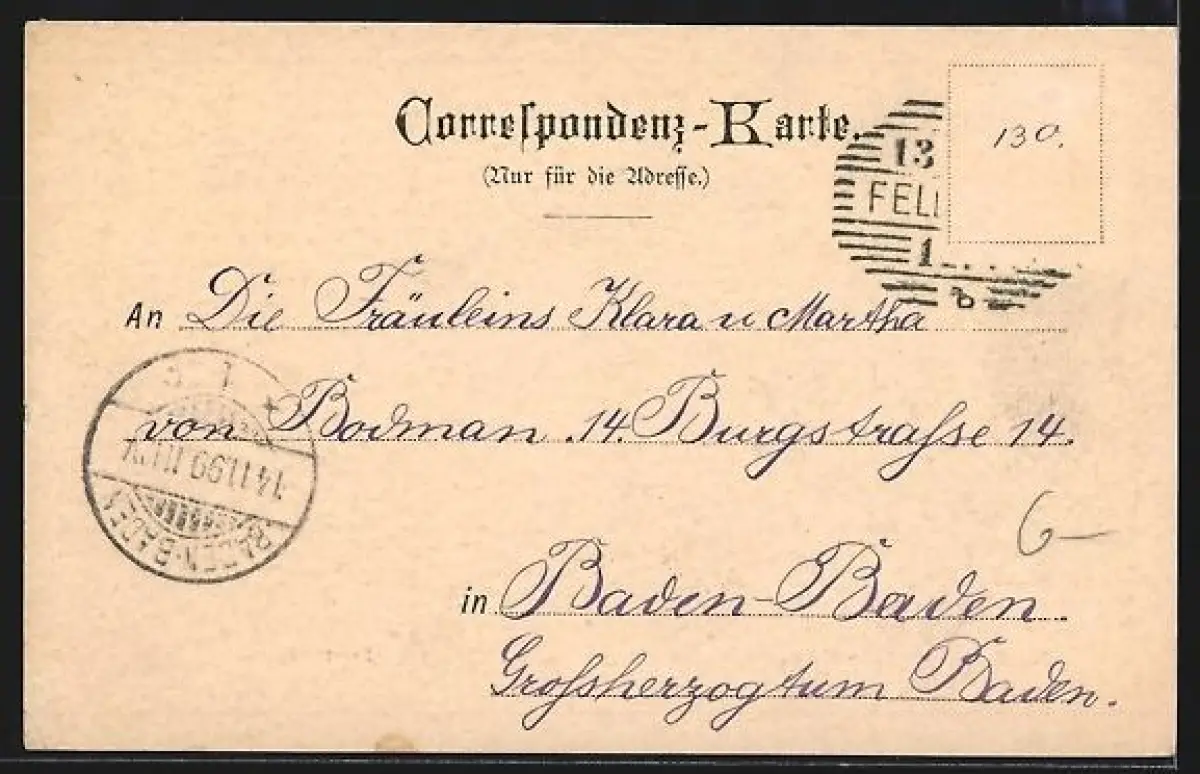 Correspondenz-Karte.
(Nur für die Adresse.)
130.
13
FEL
An Die Fräuleins Klara u Martha
von Bodman. 14. Burgstraſse 14.
14.11.99
BADEN-BADEN
6-
in Baden-Baden.
Groſsherzogtum Baden.